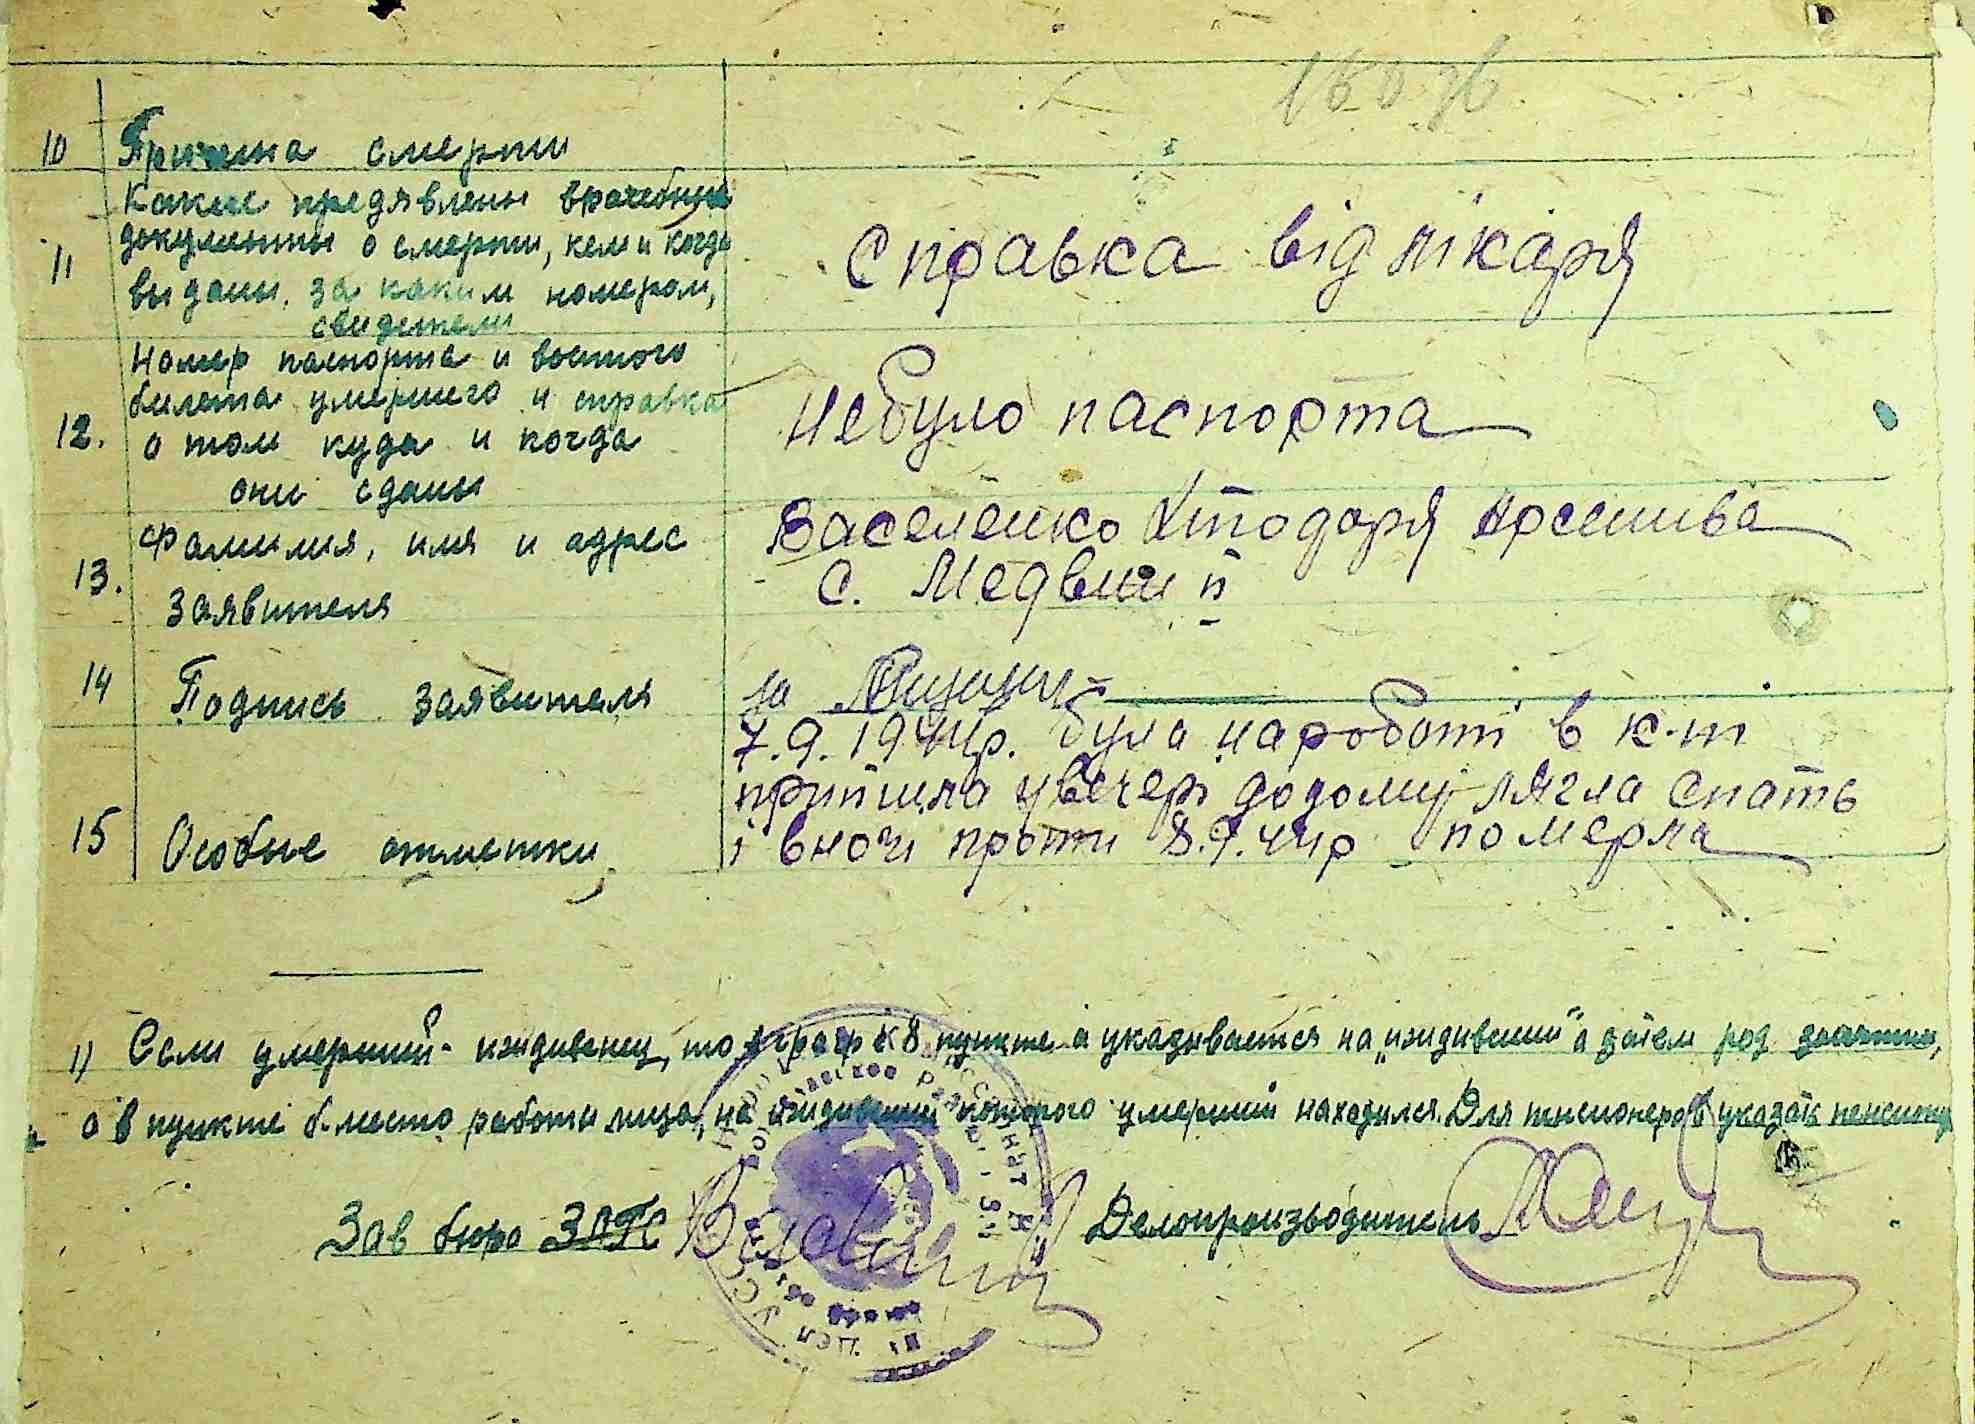 10 Причина смерти
Какие предявлены врачебные
11 документы о смерти, кем и когда
выданы, за каким номером,
свидетели
Справка від лікаря
Номер паспорта и военного
билета умершего и справка
12. о том куда и когда
они сданы
Небуло паспорта
Фамилия, имя и адрес
13. заявителя
Василенко Хтодоря Арсенива
С. Медвин й
14 Подпись заявителя
за
15 Особые отметки
7.9.1944р. була на роботі в к-ті
прийшла увечері додому лягла спать
і вночі проти 8.9.44р померла
1) Если умерший иждивенец, то в граф к 8 пункте а указывается на "иждивении" а затем род занятий,
а в пункте б. место работы лица, на иждивении которого умерший находился. Для пенсионеров указать пенсионер
Зав бюро ЗАГС
Делопроизводитель